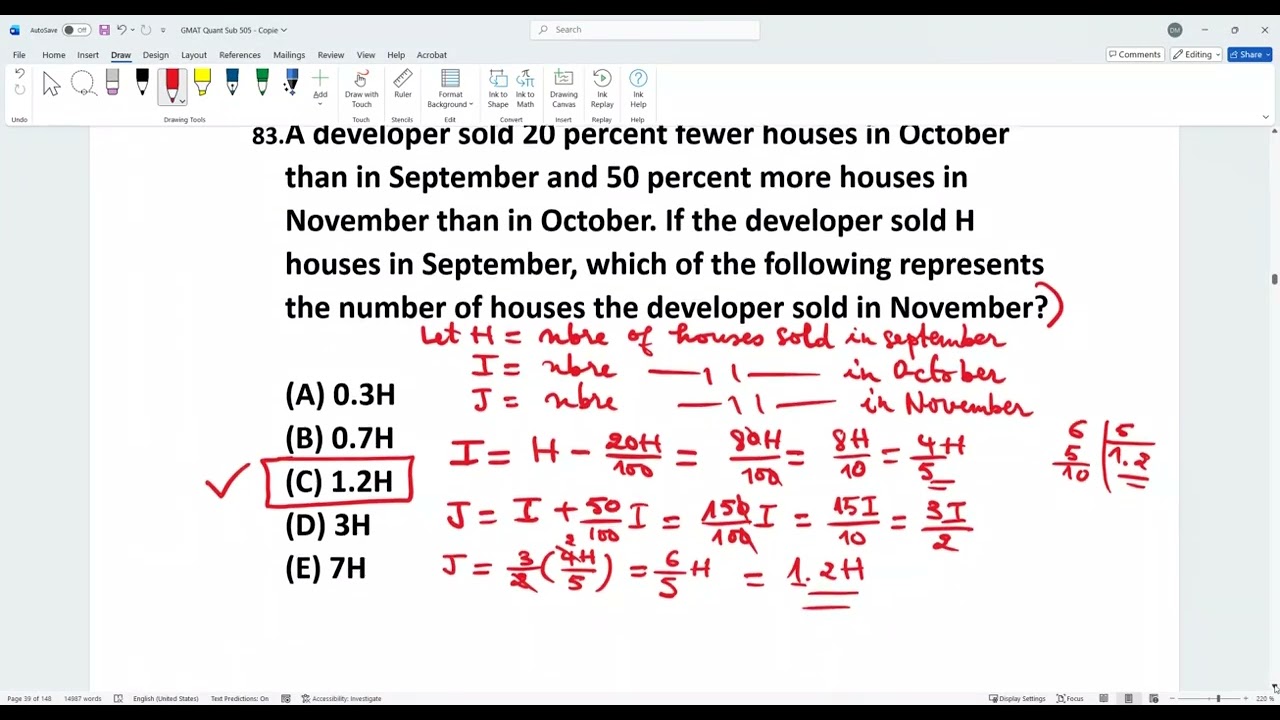 AutoSave Off GMAT Quant Sub 505 - Copie Search DM
File Home Insert Draw Design Layout References Mailings Review View Help Acrobat Comments Editing Share
Add Draw with Touch Ruler Format Background Ink to Shape Ink to Math Drawing Canvas Ink Replay Ink Help
Undo Drawing Tools Touch Stencils Edit Convert Insert Replay Help
83. A developer sold 20 percent fewer houses in October
than in September and 50 percent more houses in
November than in October. If the developer sold H
houses in September, which of the following represents
the number of houses the developer sold in November? )
Let H = nbre of houses sold in september
I = nbre —11— in October
J = nbre —11— in November
(A) 0.3H
(B) 0.7H
(C) 1.2H
(D) 3H
(E) 7H
I = H - 20H/100 = 80H/100 = 8H/10 = 4H/5
J = I + 50/100 I = 150/100 I = 15I/10 = 3I/2
J = 3/2 (4H/5) = 6/5 H = 1.2H
6 | 5
5 | 1.2
10
Page 39 of 148 14987 words English (United States) Text Predictions: On Accessibility: Investigate Display Settings Focus 220 %